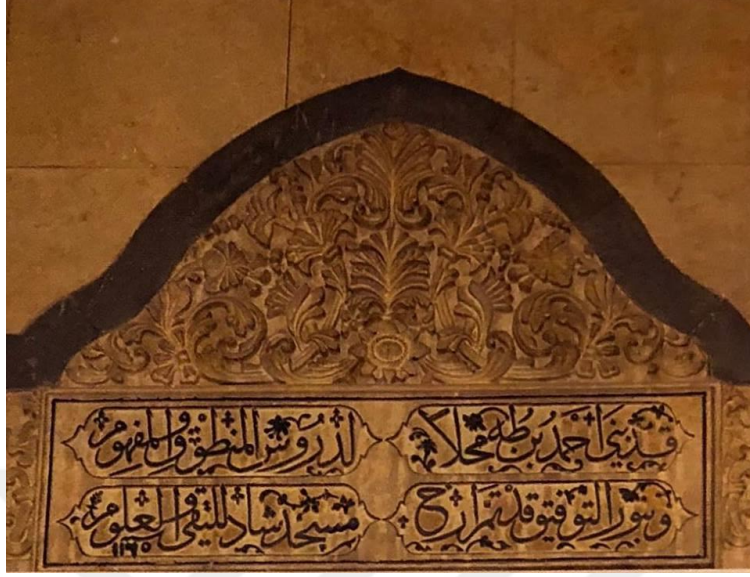 قد بنى احمد بن طه محلا لدروس المنطوق والمفهوم
وبنور التوفيق قد تم ارخ مسجد شاد للتقى والعلوم
١١٦٥